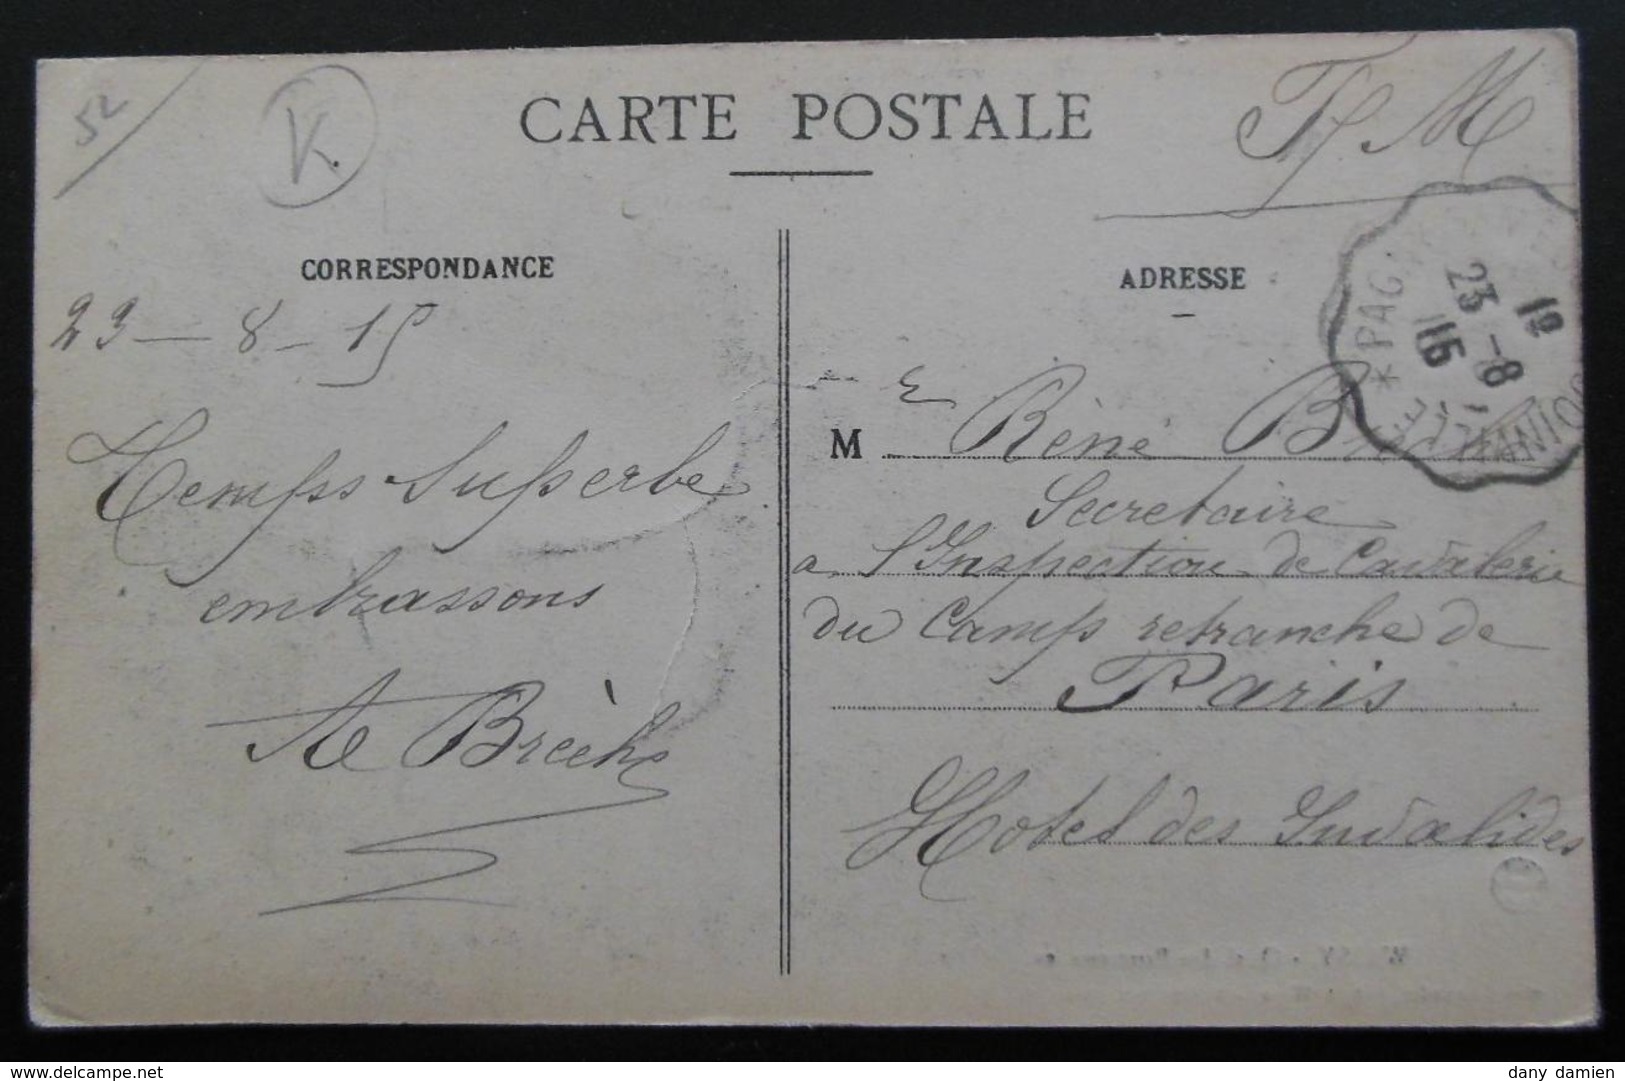 52
K.
CARTE POSTALE
F M
CORRESPONDANCE
ADRESSE
23 - 8 - 15
Temps Superbe
embrassons
A Brèche
* PAG
1º
23 - 8
15
M René B
Secretaire
a l'Inspection de Cavalerie
du Camp retranche de
Paris
Hotel des Invalides
www.delcampe.net
dany_damien